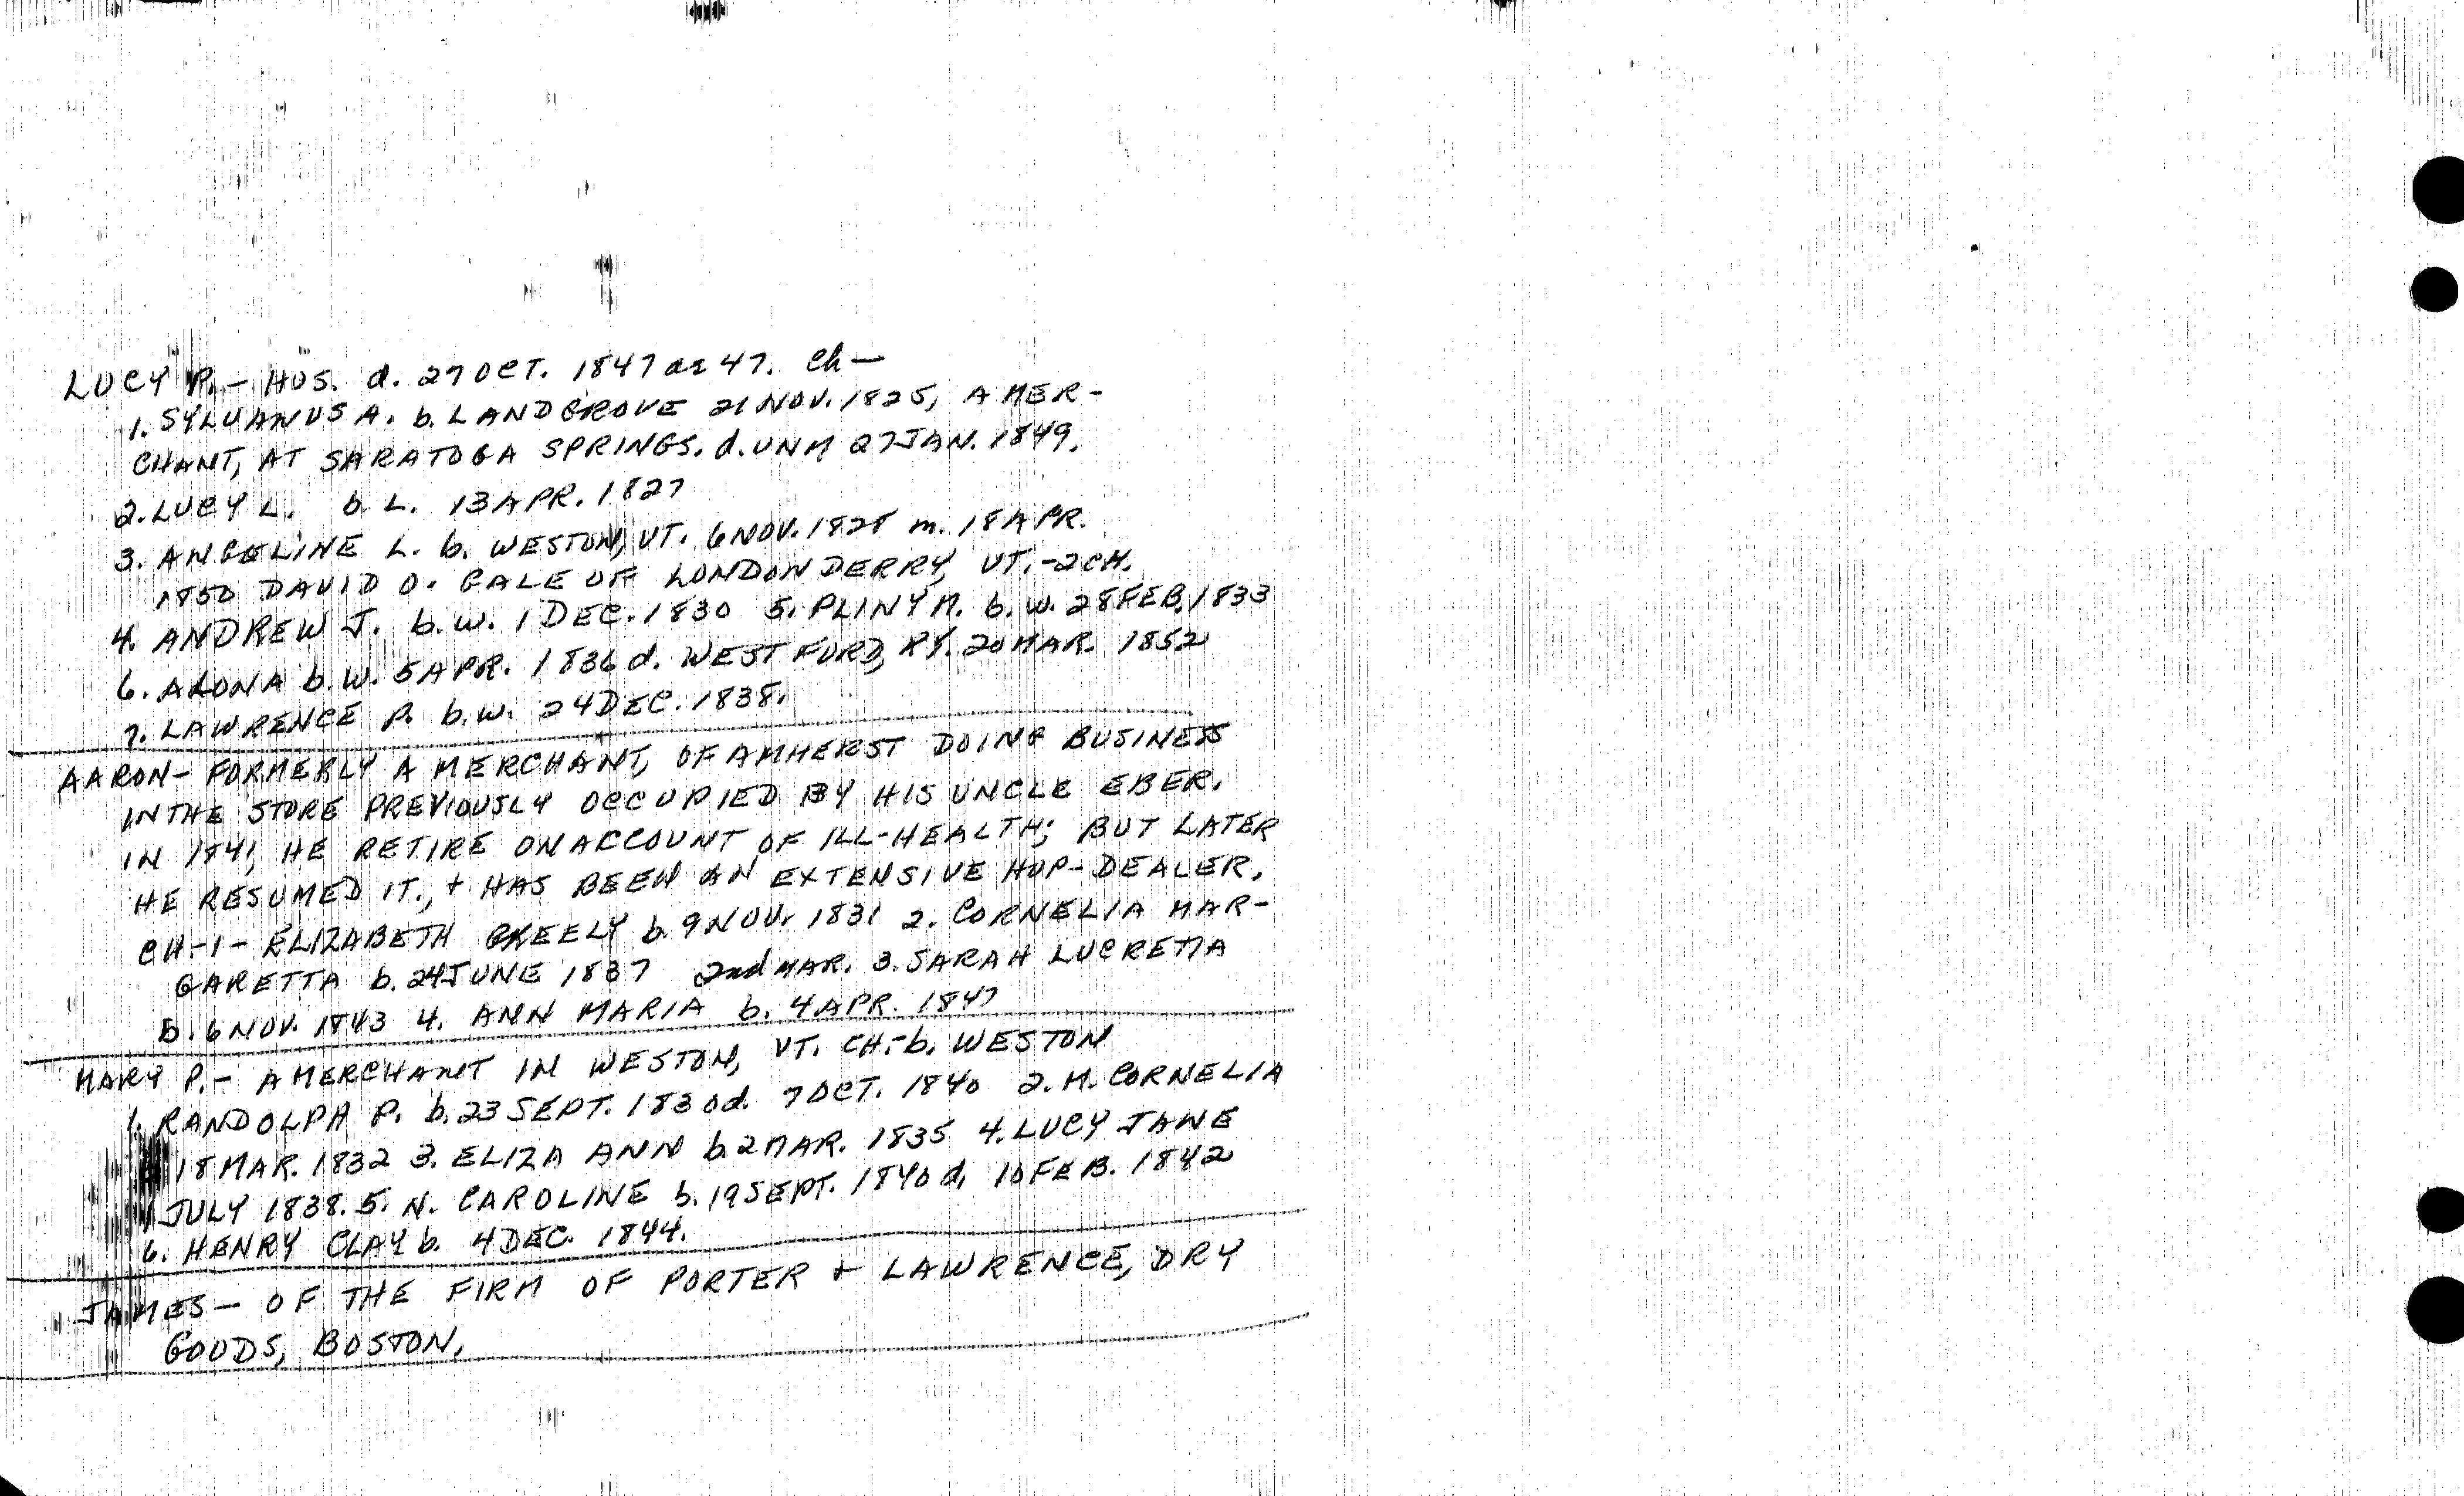 LUCY P. - HUS. d. 27 OCT. 1847 ae 47. Ch -
1. SYLVANUS A. b. LANDGROVE 21 NOV. 1825, A MER-
CHANT, AT SARATOGA SPRINGS. d. UNM 27 JAN. 1849.
2. LUCY L. b. L. 13 APR. 1827
3. ANGELINE L. b. WESTON, VT. 6 NOV. 1828 m. 18 APR.
1850 DAVID O. GALE OF LONDONDERRY, VT. - 2 CH.
4. ANDREW J. b. W. 1 DEC. 1830 5. PLINY M. b. W. 28 FEB. 1833
6. ALONA b. W. 5 APR. 1836 d. WESTFORD, 20 MAR. 1852
7. LAWRENCE P. b. W. 24 DEC. 1838.
AARON - FORMERLY A MERCHANT, OF AMHERST DOING BUSINESS
IN THE STORE PREVIOUSLY OCCUPIED BY HIS UNCLE EBER.
IN 1841, HE RETIRE ON ACCOUNT OF ILL-HEALTH; BUT LATER
HE RESUMED IT., + HAS BEEN AN EXTENSIVE HOP-DEALER.
CH. - 1 - ELIZABETH GREELY b. 9 NOV. 1831 2. CORNELIA MAR-
GARETTA b. 24 JUNE 1837 2nd MAR. 3. SARAH LUCRETIA
b. 6 NOV. 1843 4. ANN MARIA b. 4 APR. 1847
MARY P. - A MERCHANT IN WESTON, VT. CH. - b. WESTON
1. RANDOLPH P. b. 23 SEPT. 1830 d. 7 OCT. 1840 2. M. CORNELIA
18 MAR. 1832 3. ELIZA ANN b. 2 MAR. 1835 4. LUCY JANE
JULY 1838. 5. N. CAROLINE b. 19 SEPT. 1840 d. 10 FEB. 1842
6. HENRY CLAY b. 4 DEC. 1844.
JAMES - OF THE FIRM OF PORTER + LAWRENCE, DRY
GOODS, BOSTON,